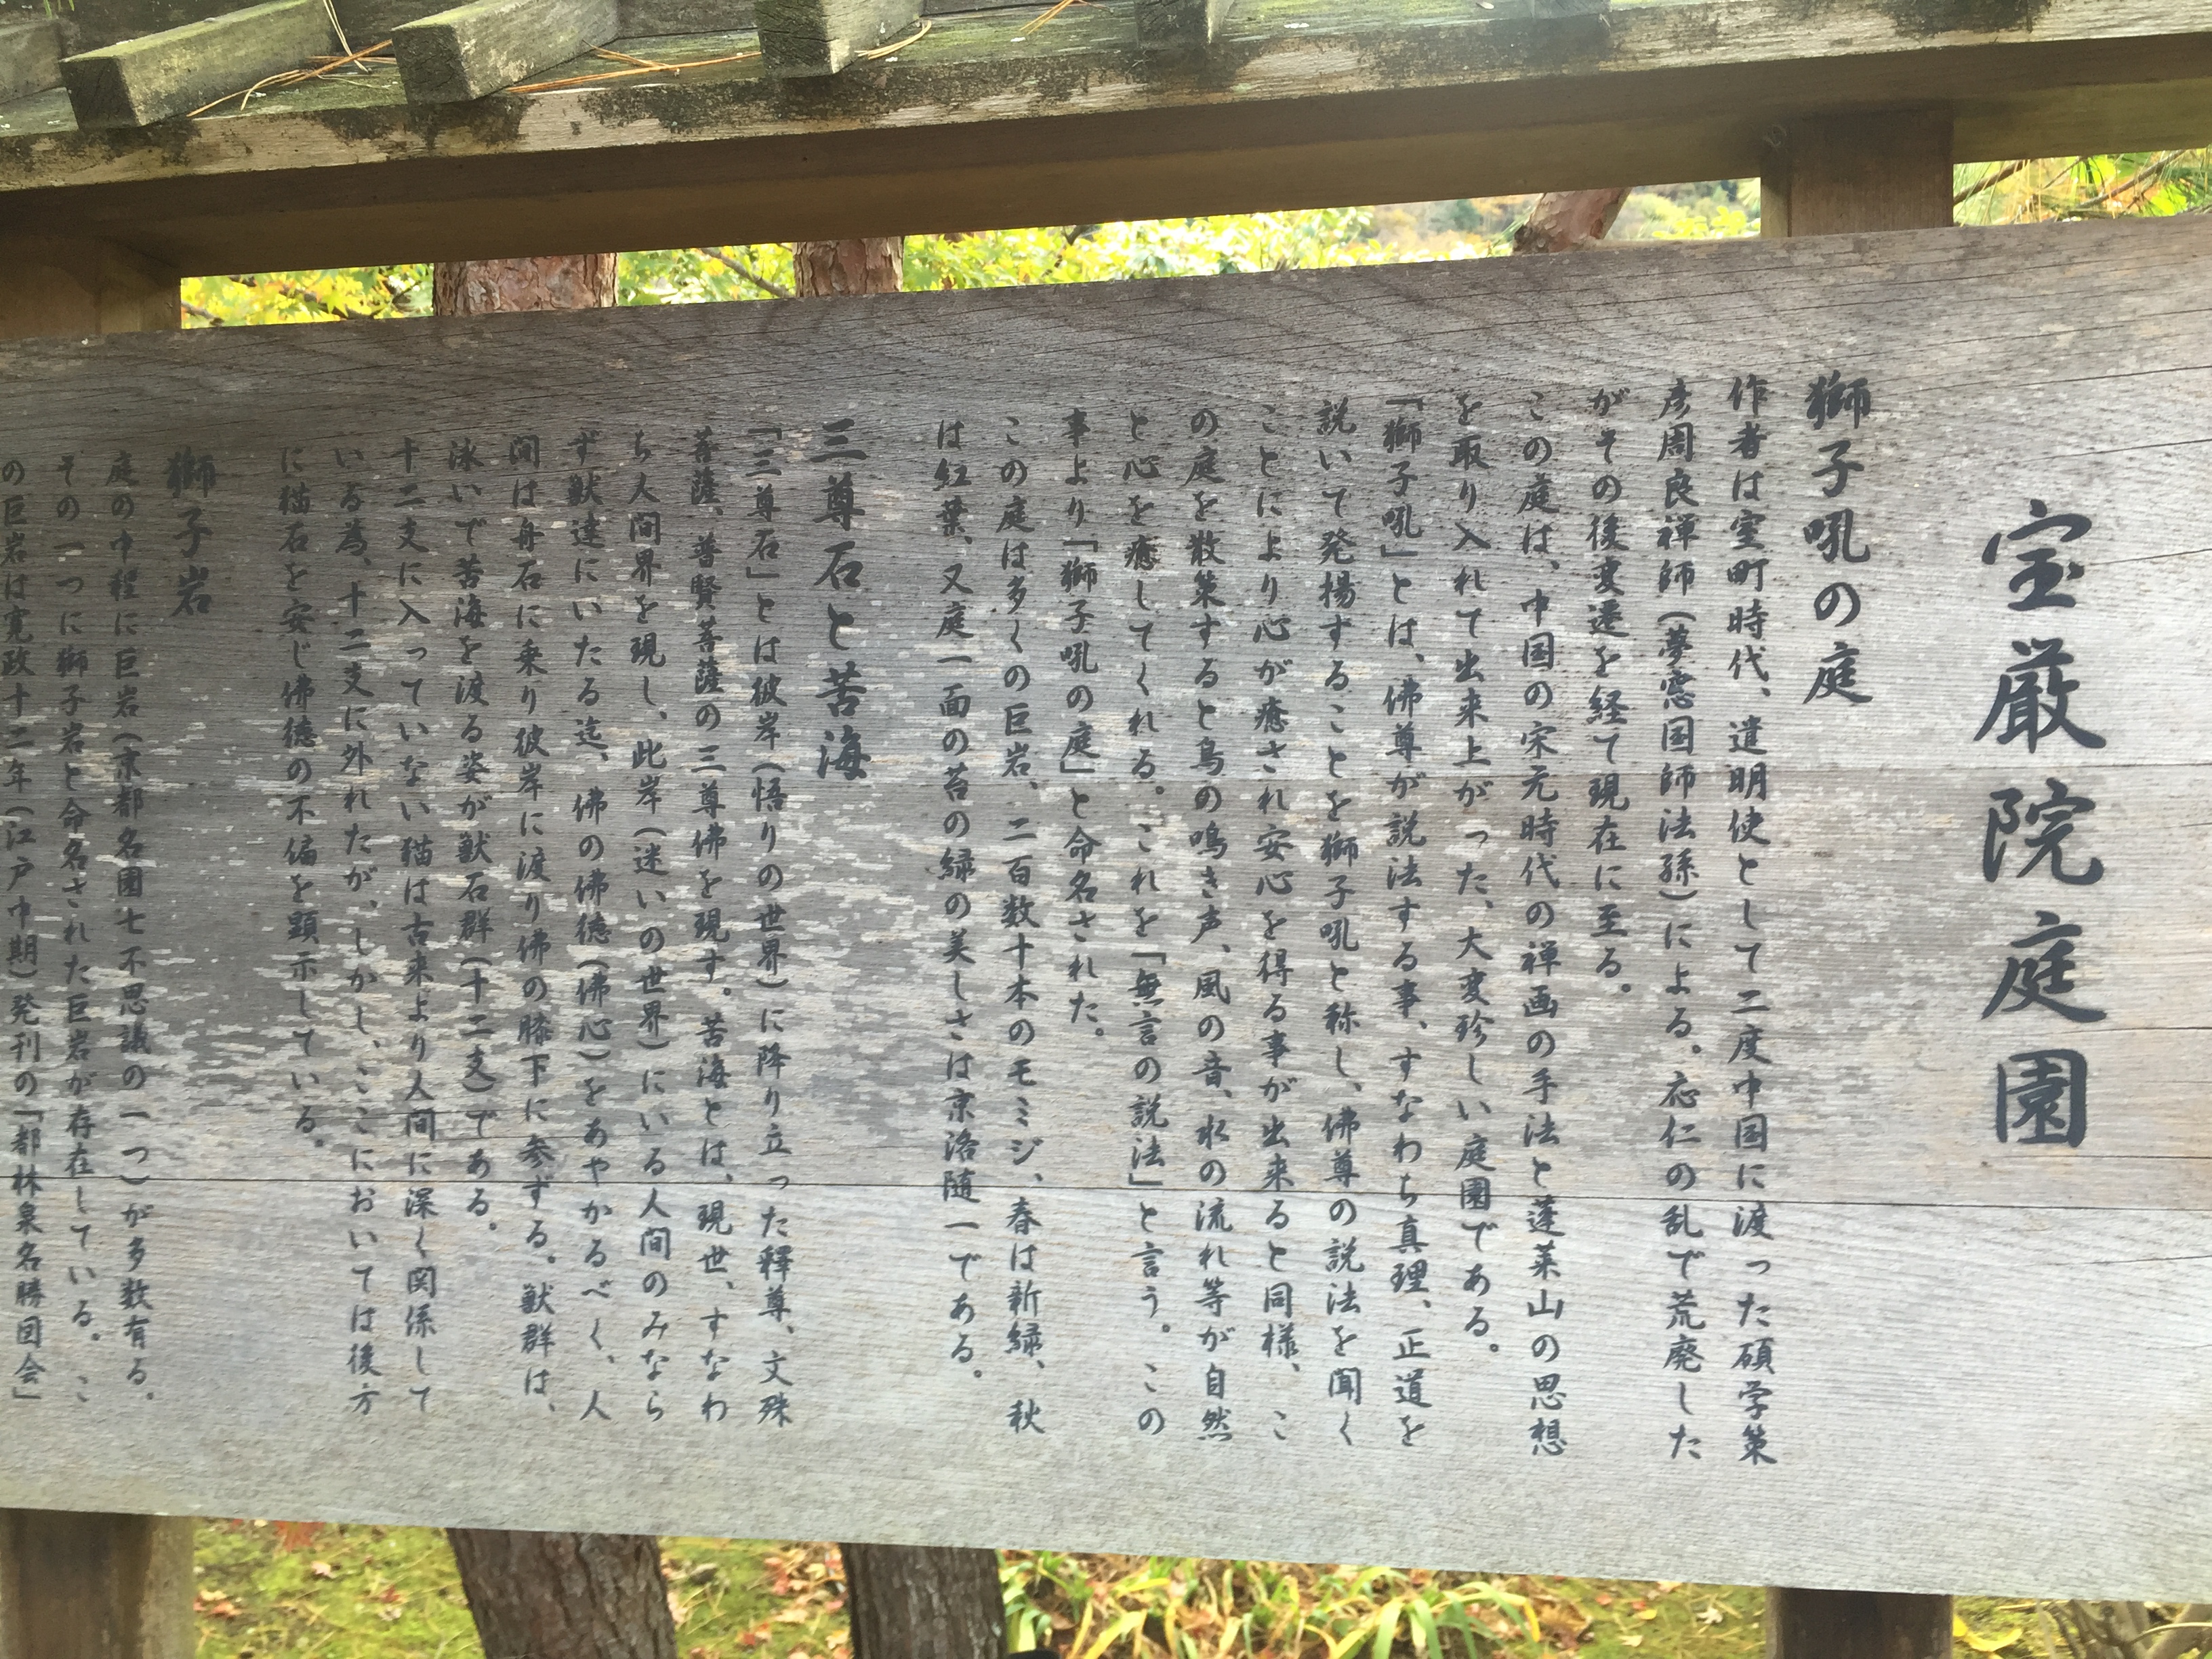 宝厳院庭園
獅子吼の庭
作者は室町時代、遣明使として二度中国に渡った碩学策
彦周良禅師(夢窓国師法孫)による。応仁の乱で荒廃した
がその後変遷を経て現在に至る。
この庭は、中国の宋元時代の禅画の手法と蓬莱山の思想
を取り入れて出来上がった、大変珍しい庭園である。
「獅子吼」とは、佛尊が説法する事、すなわち真理、正道を
説いて発揚することを獅子吼と称し、佛尊の説法を聞く
ことにより心が癒され安心を得る事が出来ると同様、こ
の庭を散策すると鳥の鳴き声、風の音、水の流れ等が自然
と心を癒してくれる。これを「無言の説法」と言う。この
事より「獅子吼の庭」と命名された。
この庭は多くの巨岩、二百数十本のモミジ、春は新緑、秋
は紅葉、又庭一面の苔の緑の美しさは京洛随一である。
三尊石と苦海
「三尊石」とは彼岸(悟りの世界)に降り立った釋尊、文殊
菩薩、普賢菩薩の三尊佛を現す。苦海とは、現世、すなわ
ち人間界を現し、此岸(迷いの世界)にいる人間のみなら
ず獣達にいたる迄、佛の佛徳(佛心)をあやかるべく、人
間は舟石に乗り彼岸に渡り佛の膝下に参ずる。獣群は、
泳いで苦海を渡る姿が獣石群(十二支)である。
十二支に入っていない猫は古来より人間に深く関係して
いる為、十二支に外れたが、しかし、ここにおいては後方
に猫石を安じ佛徳の不偏を顕示している。
獅子岩
庭の中程に巨岩(京都名園七不思議の一つ)が多数有る。
その一つに獅子岩と命名された巨岩が存在している。こ
の巨岩は寛政十二年(江戸中期)発刊の「都林泉名勝図会」